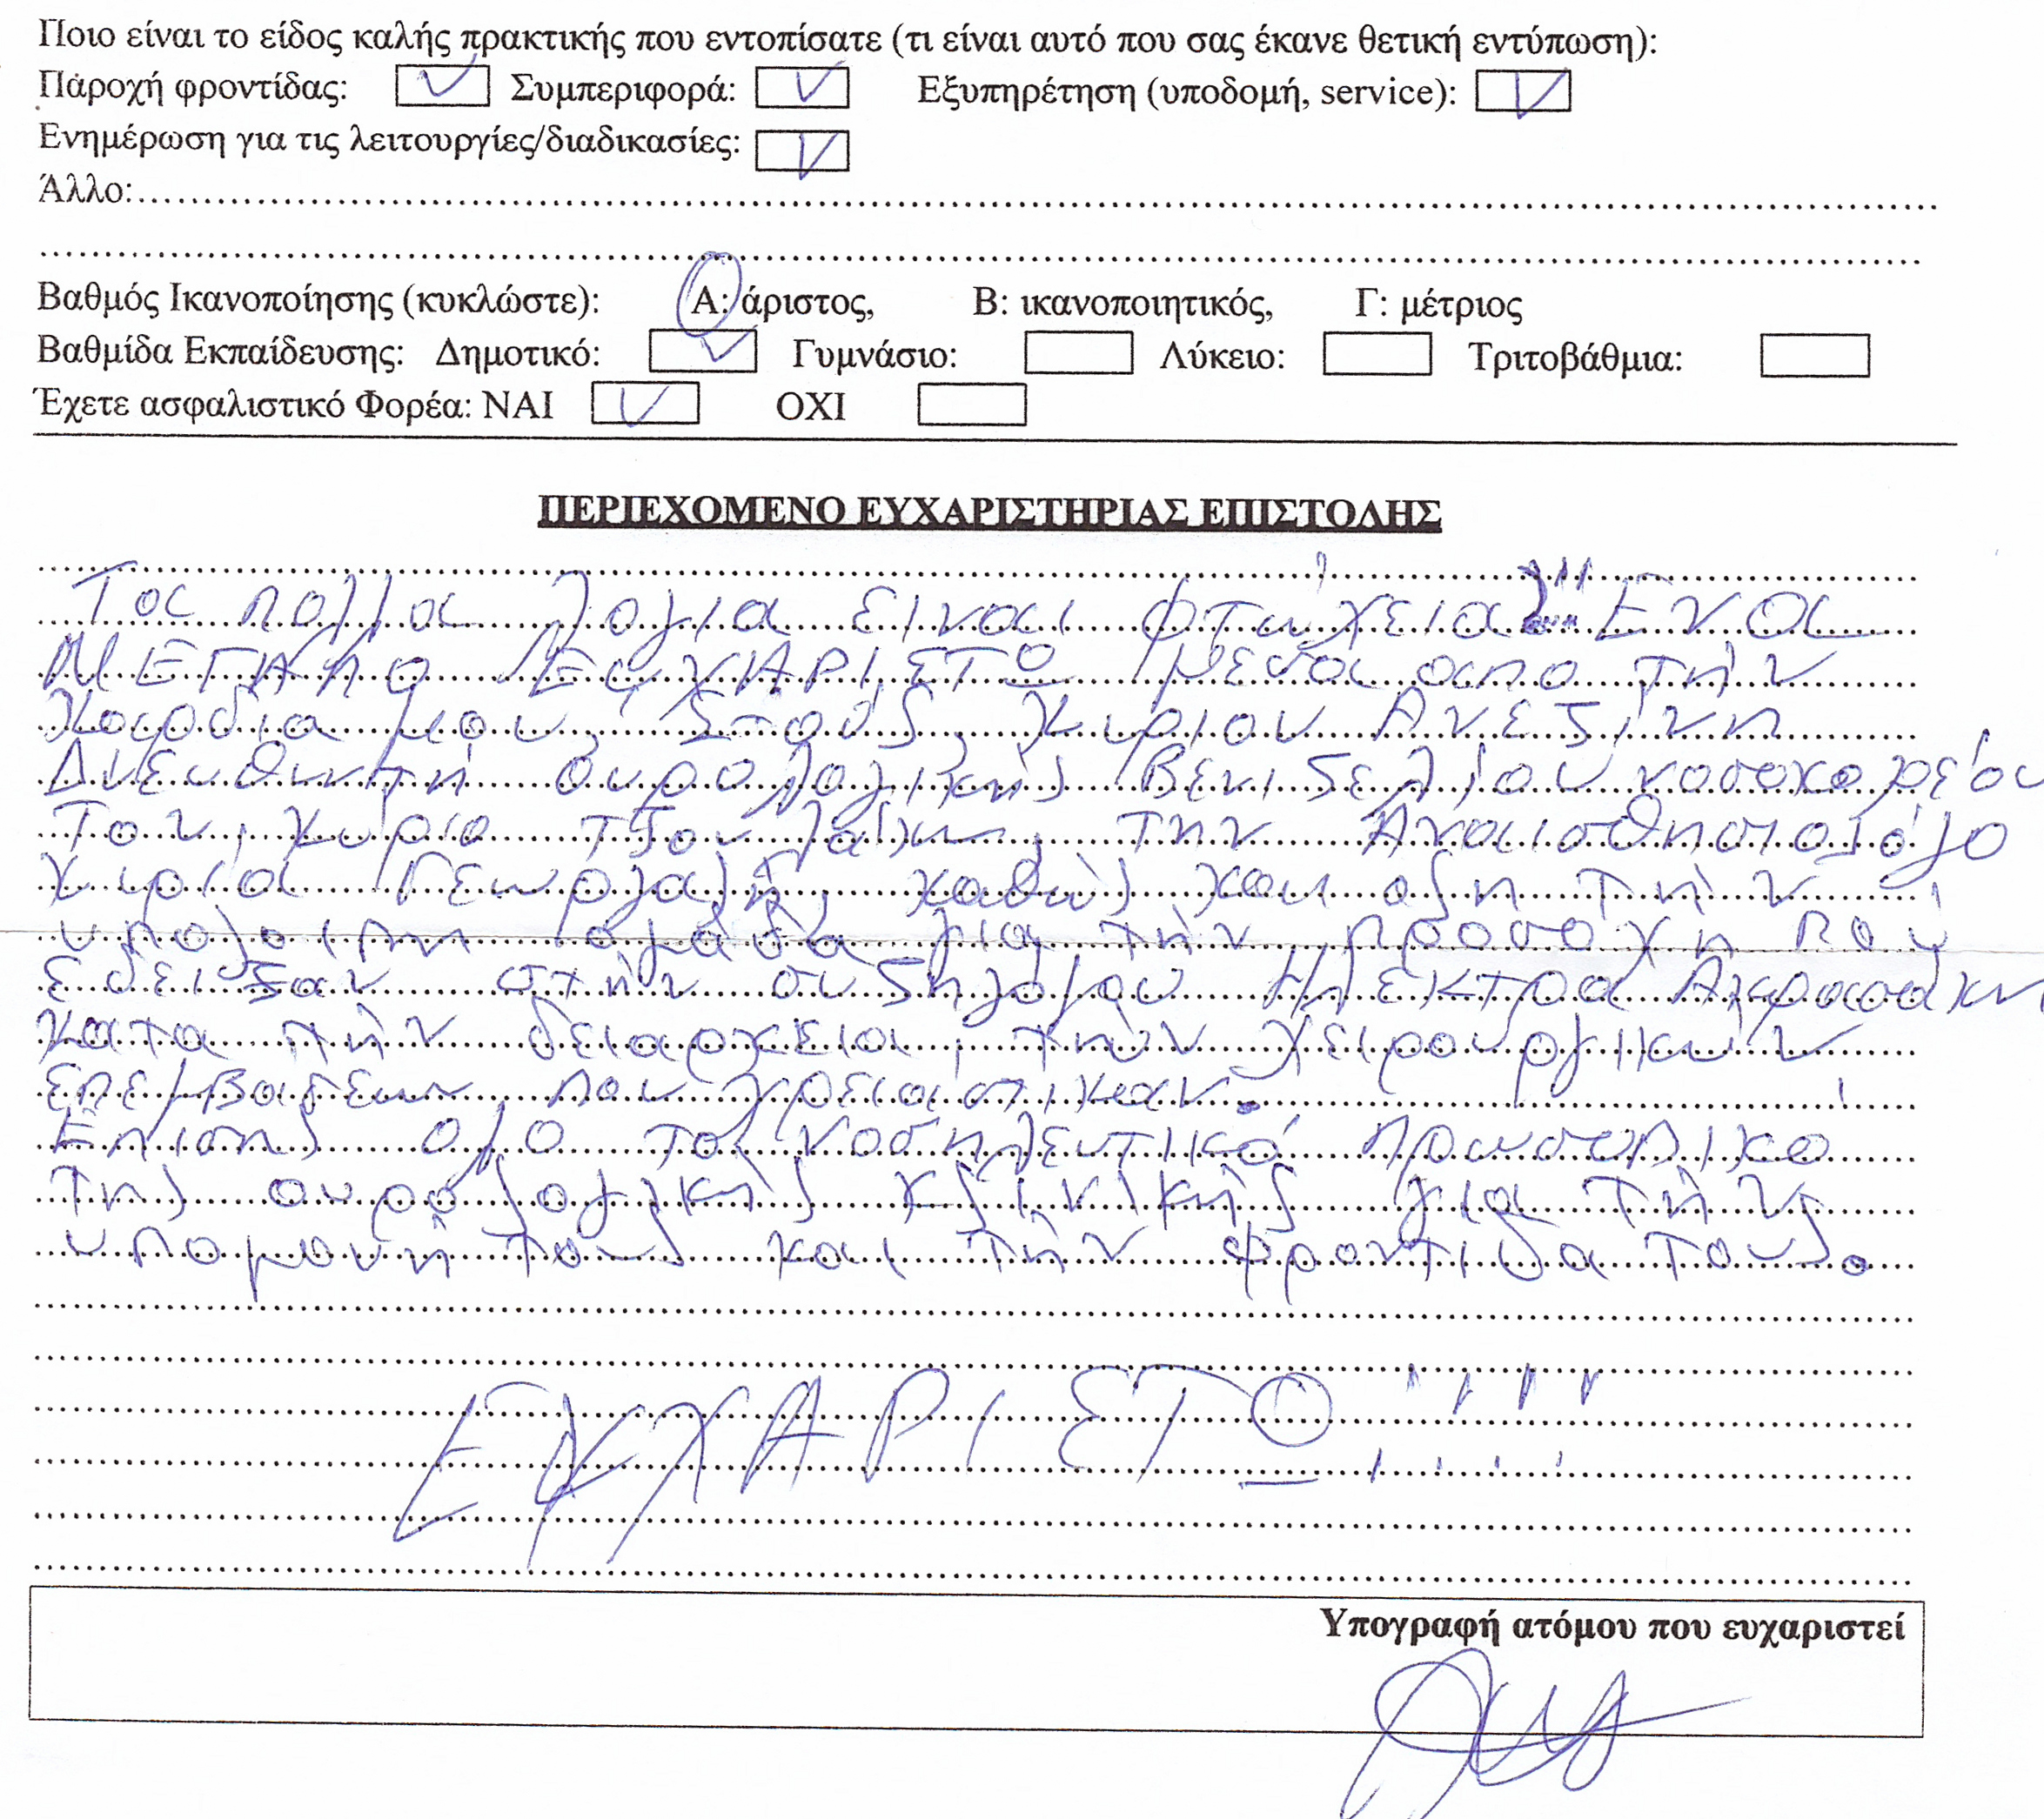 Ποιο είναι το είδος καλής πρακτικής που εντοπίσατε (τι είναι αυτό που σας έκανε θετική εντύπωση):
Παροχή φροντίδας: Συμπεριφορά: Εξυπηρέτηση (υποδομή, service):
Ενημέρωση για τις λειτουργίες/διαδικασίες:
Άλλο:
Βαθμός Ικανοποίησης (κυκλώστε): Α: άριστος, Β: ικανοποιητικός, Γ: μέτριος
Βαθμίδα Εκπαίδευσης: Δημοτικό: Γυμνάσιο: Λύκειο: Τριτοβάθμια:
Έχετε ασφαλιστικό Φορέα: ΝΑΙ ΟΧΙ
ΠΕΡΙΕΧΟΜΕΝΟ ΕΥΧΑΡΙΣΤΗΡΙΑΣ ΕΠΙΣΤΟΛΗΣ
Τα πολλα λογια ειναι φτώχεια!!! Ενα
ΜΕΓΑΛΟ ΕυΧΑΡΙΣΤΟ μεσα απο τήν
καρδια μου, Στούς, Κυριον Ανεζίνη
Διευθηντή ουρολογικής Βενιζελίου νοσοκομείου
Τον, κύριο την Αναισθησιολόγο
κυρια Γεωργαλή, καθώς και ολη τήν
υπολοιπη ομάδα για τήν προσοχη πού
εδειξαν στήν συζηγομου Ηλεκτρα Ακρασάκη
κατα τήν δειαρκεια, τών χειρουργικών
επεμβασεων που χρειαστικαν.
Επισης ολο το νοσηλευτικό πρωσοπικο
της ουρολογικής κλινικής για τήν
υπομονή τους και τήν φροντιδα τους.
ΕΥΧΑΡΙΣΤΟ !!!!
Υπογραφή ατόμου που ευχαριστεί